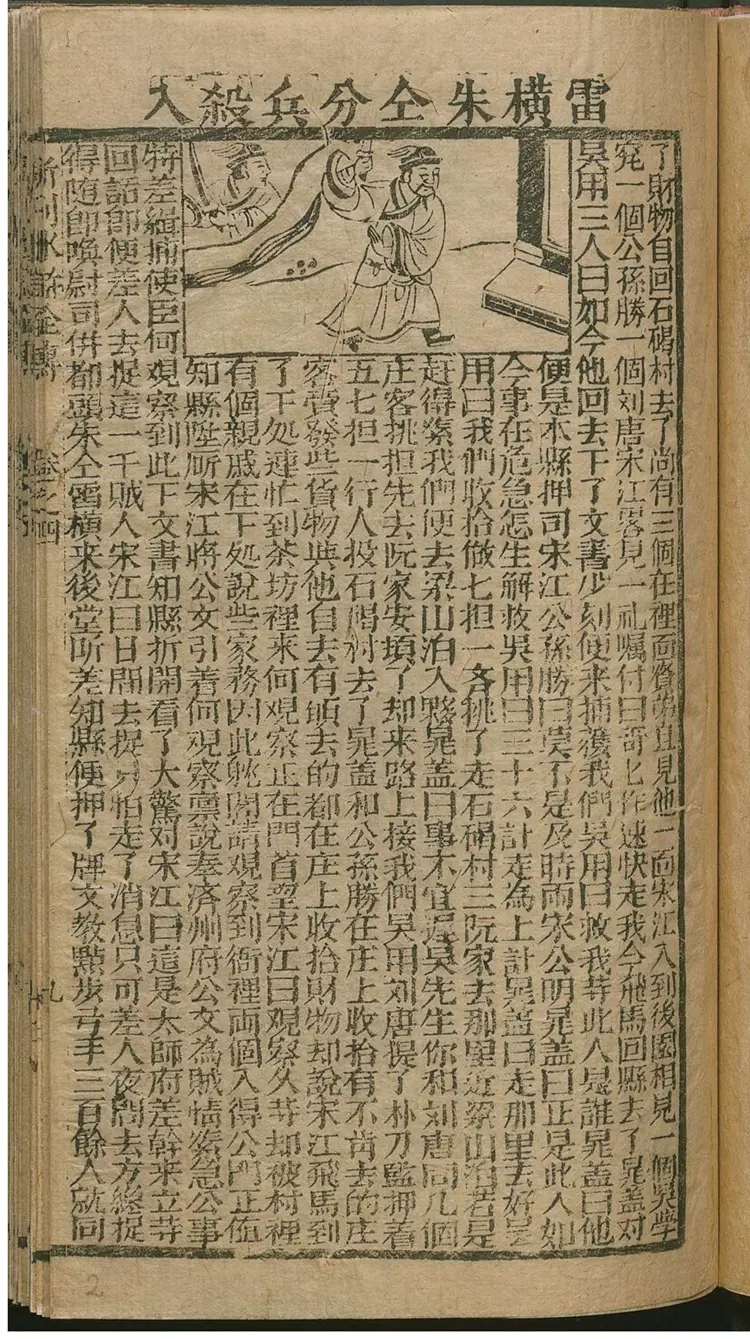 雷橫朱仝分兵殺人
了財物自回石碣村去了尚有三個在裡面賫助且見他一面宋江入到後園相見一個吳學
究一個公孫勝一個刘唐宋江畧見一礼囑付曰哥七作速快走我今飛馬回縣去了晁盖对
吳用三人曰如今他回去下了文書少刻便来捕獲我們吳用曰救我等此人是誰晁盖曰他
便是本縣押司宋江公孫勝曰莫不是及時雨宋公明晁盖曰正是此人如
今事在危急怎生解救吳用曰三十六計走為上計晁盖曰走那里去好吳
用曰我們收拾做七担一齐挑了走石碣村三阮家去那里近梁山泊若是
赶得緊我們便去梁山泊入夥晁盖曰事不宜遲吳先生你和刘唐同几個
庄客挑担先去阮家安頓了却来路上接我們吳用刘唐提了朴刀監押着
五七担一行人投石碣村去了晁盖和公孫勝在庄上收拾有不肯去的庄
客賫發些貨物與他自去有頭去的都在庄上收拾財物却說宋江飛馬到
了下処連忙到茶坊裡来何观察正在門首望宋江曰观察久等却被村裡
有個親戚在下処說些家務因此躭閣請观察到衙裡両個入得公門正值
知縣陞厛宋江將公文引着何观察禀說奉济州府公文為賊情緊急公事
特差緝捕使臣何观察到此下文書知縣折開看了大驚对宋江曰這是太師府差幹来立等
回話即便差人去捉這一千賊人宋江曰日間去捉只怕走了消息只可差人夜間去方纔捉
得随即喚尉司併都頭朱仝雷橫来後堂听差知縣便押了牌文教點步弓手三百餘人就同